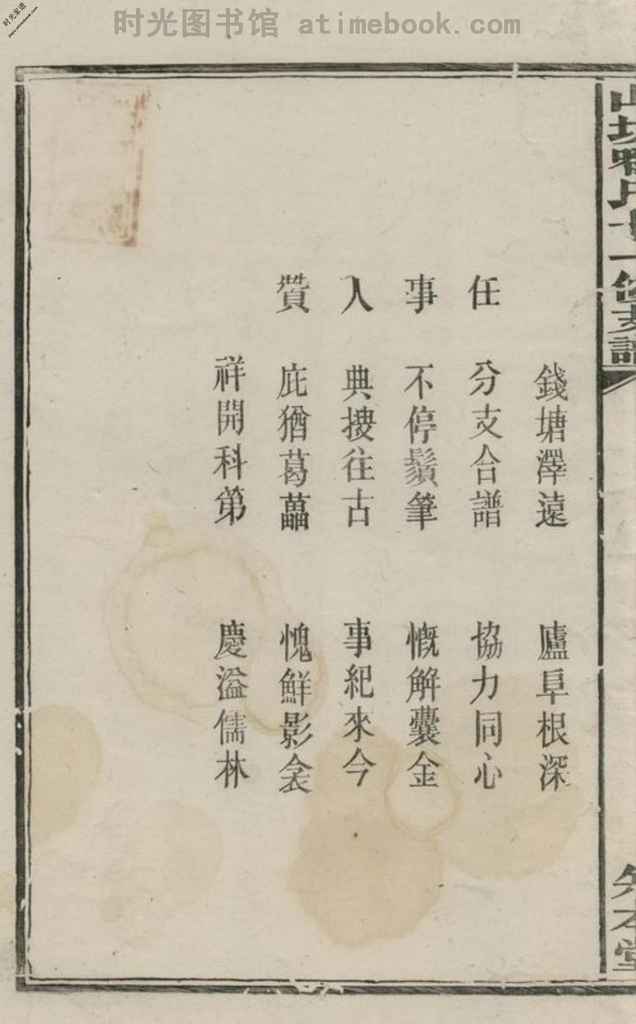 时光图书馆 atimebook.com
錢塘澤遠 廬阜根深
任 分支合譜 協力同心
事 不停鬚筆 慨解囊金
人 典搜往古 事紀來今
贊 庇猶葛藟 愧鮮影衾
祥開科第 慶溢儒林